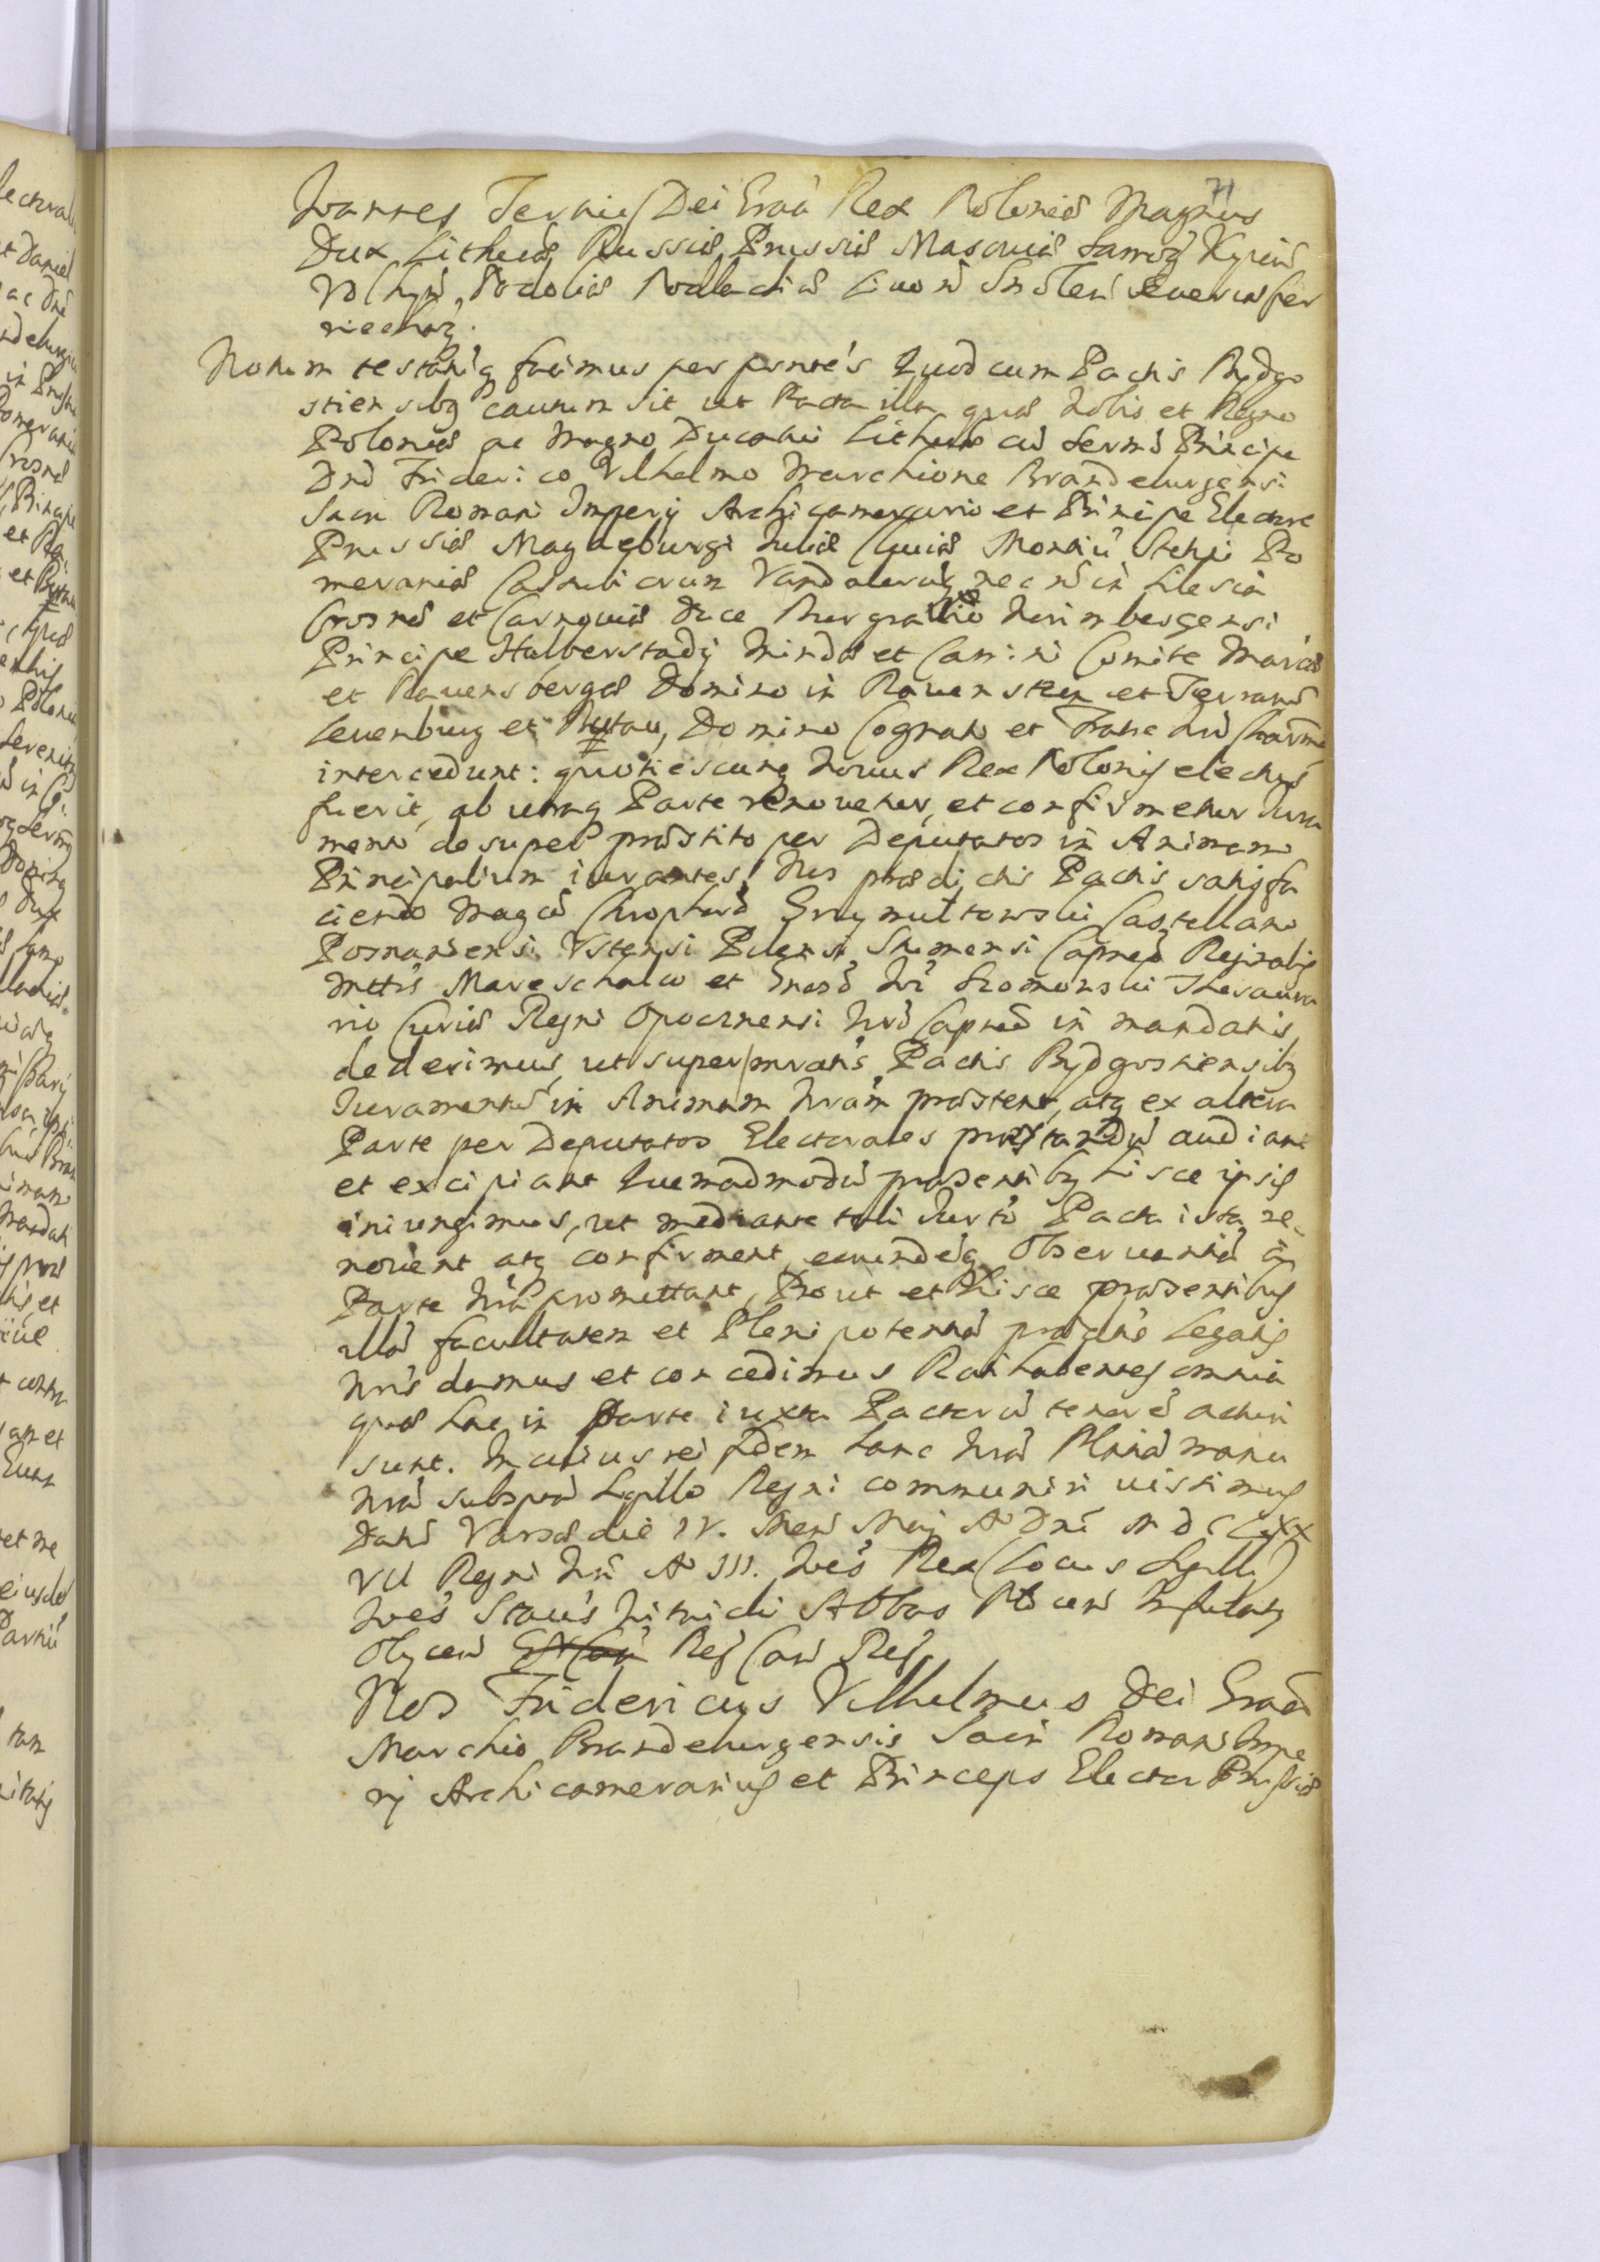 71
Joannes Tertius Dei Graã Rex Poloniæ Magnus
Dux Lithuaæ Russiæ Prussiæ Masouiæ Samog Kyjouiæ
Volhyñ, Podoliæ Podlachiæ Liuoñ Smoleñ Seueriæ Czer
niechoz.
Notum testatũq facimus per pñtes Quod cum Pactis Bydgo
stiensibq cautum sit ut Pacta illa quæ Nobis et Regno
Poloniæ ac Magno Ducatui Lithuaæ cũ Sermõ Principe
Dnõ Friderico Vilhelmo Marchione Brandeburgensi
Sacri Romani Imperij Archicamerario et Principe Electore
Prussiæ Magdeburgi Juliæ Cliuiæ Montiũ Stetini Po
meraniæ Casubiorum Vandalorũq nec nõ in Silesia
Crosnæ et Carnouiæ Duce Burgrauio Norimbergensi
Principe Halberstadij Mindæ et Camini Comite Marcæ
et Rauensbergæ Domino in Rauenstein et Terrarũ
Leuenburg et Bytau, Domino Cognato et Fratre Nrõ Charmõ
intercedunt: quotiescunq Nouus Rex Poloniæ electus
fuerit, ab utraq Parte renouetur, et confirmetur Jura
mento desuper præstito per Deputatos in Animam
Principalium iurantes. Nos prædictis Pactis satisfa
ciendo Magcõ Chrophorõ Grzymultowski Castellano
Posnaniensi Ustensi Pilensi Capneõ Reginalis
Mttis Mareschalco et Gnosõ Szomowski Thesaura
rio Curiæ Regni Opocznensi Nrõ Capneõ in mandatis
dederimus, ut super pmratis Pactis Bydgostiensibq
Juramentũ in Animam Nram præstent, atq ex altera
Parte per Deputatos Electorales præstandũ audiant
et excipiant Quemadmodũ præsentibq hisce ipsis
iniungimus, ut mediante tali Jurtõ Pacta ista re-
nouent atq confirment, eorundẽq Obseruantiã à
Parte Nrã promittant, Prout et Hisce præsentibus
illã facultatem et Plenipotentiã prædctis Legatis
Nris damus et concedimus Rati habentes omnia
quæ hac in parte iuxta Pactorũ tenorẽ acturi
sunt. In cuius rei fidem hanc Nrã Pltriã manu
Nrã subsptã Sgillo Regni communiri iussimus
Datũ Varsæ die IV. Mens Maij Aº Dni M D C LXX
VII Regni Nri Aº III. Joẽs Rex (Locus Sgilli)
Joẽs Staũs Abbas
Reg Cañ Reg.
Nos Fridericus Vilhelmus Dei Graã
Marchio Brandeburgensis Sacri Romani Impe
rij Archicamerarius et Princeps Elector Prussiæ